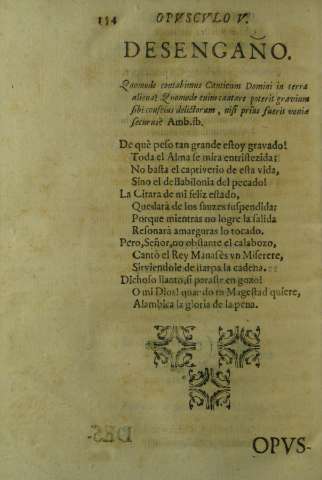 134 OPVSCVLO V.
DESENGAÑO.
Quomodo cantabimus Canticum Domini in terra
aliena? Quomodo enim cantare poterit gravium
sibi conscius delictorum, nisi prius fuerit venia
securus? Amb. ib.
De què peso tan grande estoy gravado!
Toda el Alma se mira entristezida;
No basta el captiverio de esta vida,
Sino el de Babilonia del pecado!
La Citara de mi feliz estado,
Quedarà de los sauzes suspendida;
Porque mientras no logre la salida
Resonarà amarguras lo tocado.
Pero, Señor, no obstante el calabozo,
Cantò el Rey Manasès vn Miserere,
Sirviendole de Harpa la cadena.
Dichoso llanto, si paraste en gozo!
O mi Dios! quando tu Magestad quiere,
Alambica la gloria de la pena.
OPVS-